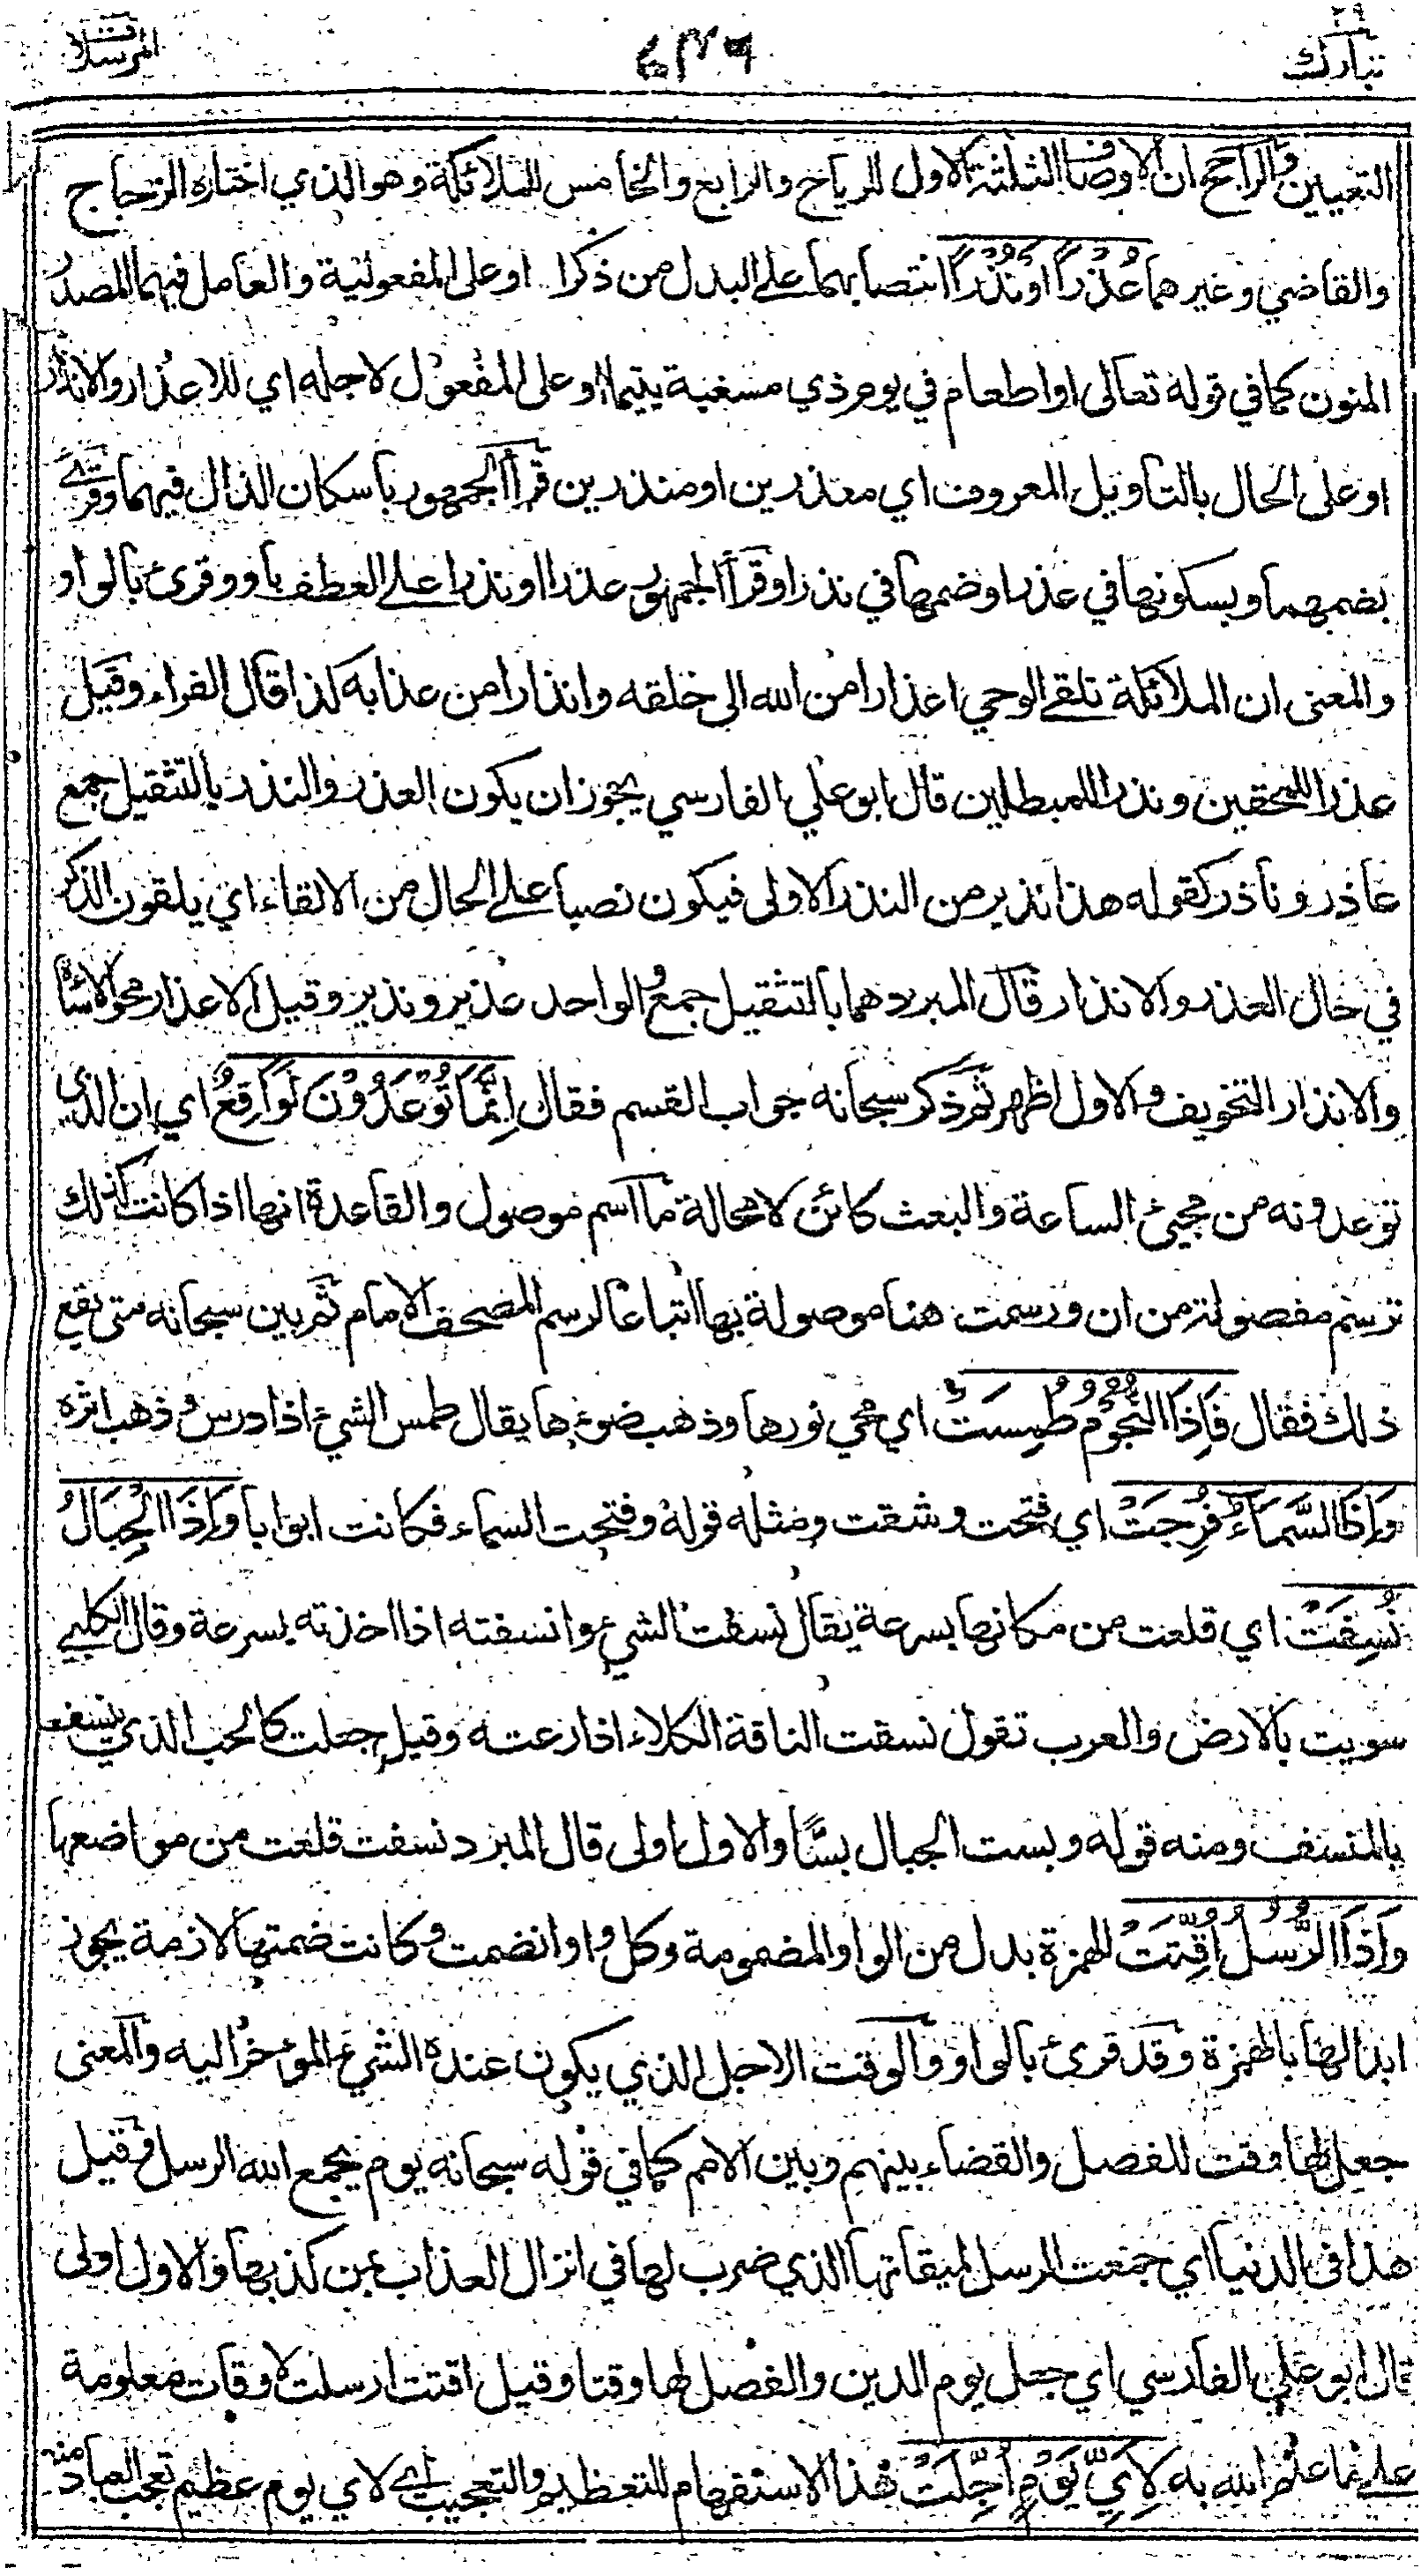 المرسلات ٢٩ تبارك
التعيين والراجح ان الاوصاف الثلثة الاول للرياح والرابع والخامس للملائكة وهو الذي اختاره الزجاج
والقاضي وغيرهما عُذْرًا اَوْ نُذْرًا انتصابهما على البدل من ذكرا او على المفعولية والعامل فيهما المصدر
المنون كما في قوله تعالى او اطعام في يوم ذي مسغبة يتيما او على المفعول لاجله اي للاعذار والانذار
او على الحال بالتاويل المعروف اي معذرين او منذرين قرأ الجمهور باسكان الذال فيهما وقرئ
بضمهما وبسكونها في عذرا وضمها في نذرا وقرأ الجمهور عذرا او نذرا على العطف باو وقرئ بالواو
والمعنى ان الملائكة تلقي الوحي اعذارا من الله الى خلقه وانذارا من عذابه كذا قال الفراء وقيل
عذرا للمحقين ونذرا للمبطلين قال ابو علي الفارسي يجوز ان يكون العذر والنذر بالتثقيل جمع
عاذر وناذر كقوله هذا نذير من النذر الاولى فيكون نصبا على الحال من الالقاء اي يلقون الذكر
في حال العذر والانذار قال المبرد هما بالتثقيل جمع والواحد عذير ونذير وقيل الاعذار محو الاساءة
والانذار التخويف والاول اظهر ثم ذكر سبحانه جواب القسم فقال اِنَّمَا تُوْعَدُوْنَ لَوَاقِعٌ اي ان الذي
توعدونه من مجيئ الساعة والبعث كائن لا محالة ما اسم موصول والقاعدة انها اذا كانت كذلك
ترسم مفصولة من ان ورسمت هنا موصولة بها اتباعا لرسم المصحف الامام ثم بين سبحانه متى يقع
ذلك فقال فَاِذَا النُّجُوْمُ طُمِسَتْ اي محي نورها وذهب ضوءها يقال طمس الشيء اذا درس وذهب اثره
وَاِذَا السَّمَاءُ فُرِجَتْ اي فتحت وشقت ومثله قوله وفتحت السماء فكانت ابوابا وَاِذَا الْجِبَالُ
نُسِفَتْ اي قلعت من مكانها بسرعة يقال نسفت الشيء وانسفته اذا اخذته بسرعة وقال الكلبي
سويت بالارض والعرب تقول نسفت الناقة الكلاء اذا رعته وقيل جعلت كالحب الذي ينسف
بالمنسف ومنه قوله وبست الجبال بسًّا والاول اولى قال المبرد نسفت قلعت من مواضعها
وَاِذَا الرُّسُلُ اُقِّتَتْ الهمزة بدل من الواو المضمومة وكل واو انضمت وكانت ضمتها لازمة يجوز
ابدالها بالهمزة وقد قرئ بالواو والوقت الاجل الذي يكون عنده الشيء المؤخر اليه والمعنى
جعل لها وقت للفصل والقضاء بينهم وبين الامم كما في قوله سبحانه يوم يجمع الله الرسل وقيل
هذا في الدنيا اي جمعت الرسل لميقاتها الذي ضرب لها في انزال العذاب بمن كذبها والاول اولى
قال ابو علي الفارسي اي جعل يوم الدين والفصل لها وقتا وقيل اقتت ارسلت لاوقات معلومة
على ما علم الله به لِاَيِّ يَوْمٍ اُجِّلَتْ هذا الاستفهام للتعظيم والتعجيب اي لاي يوم عظيم تعجب العباد منه